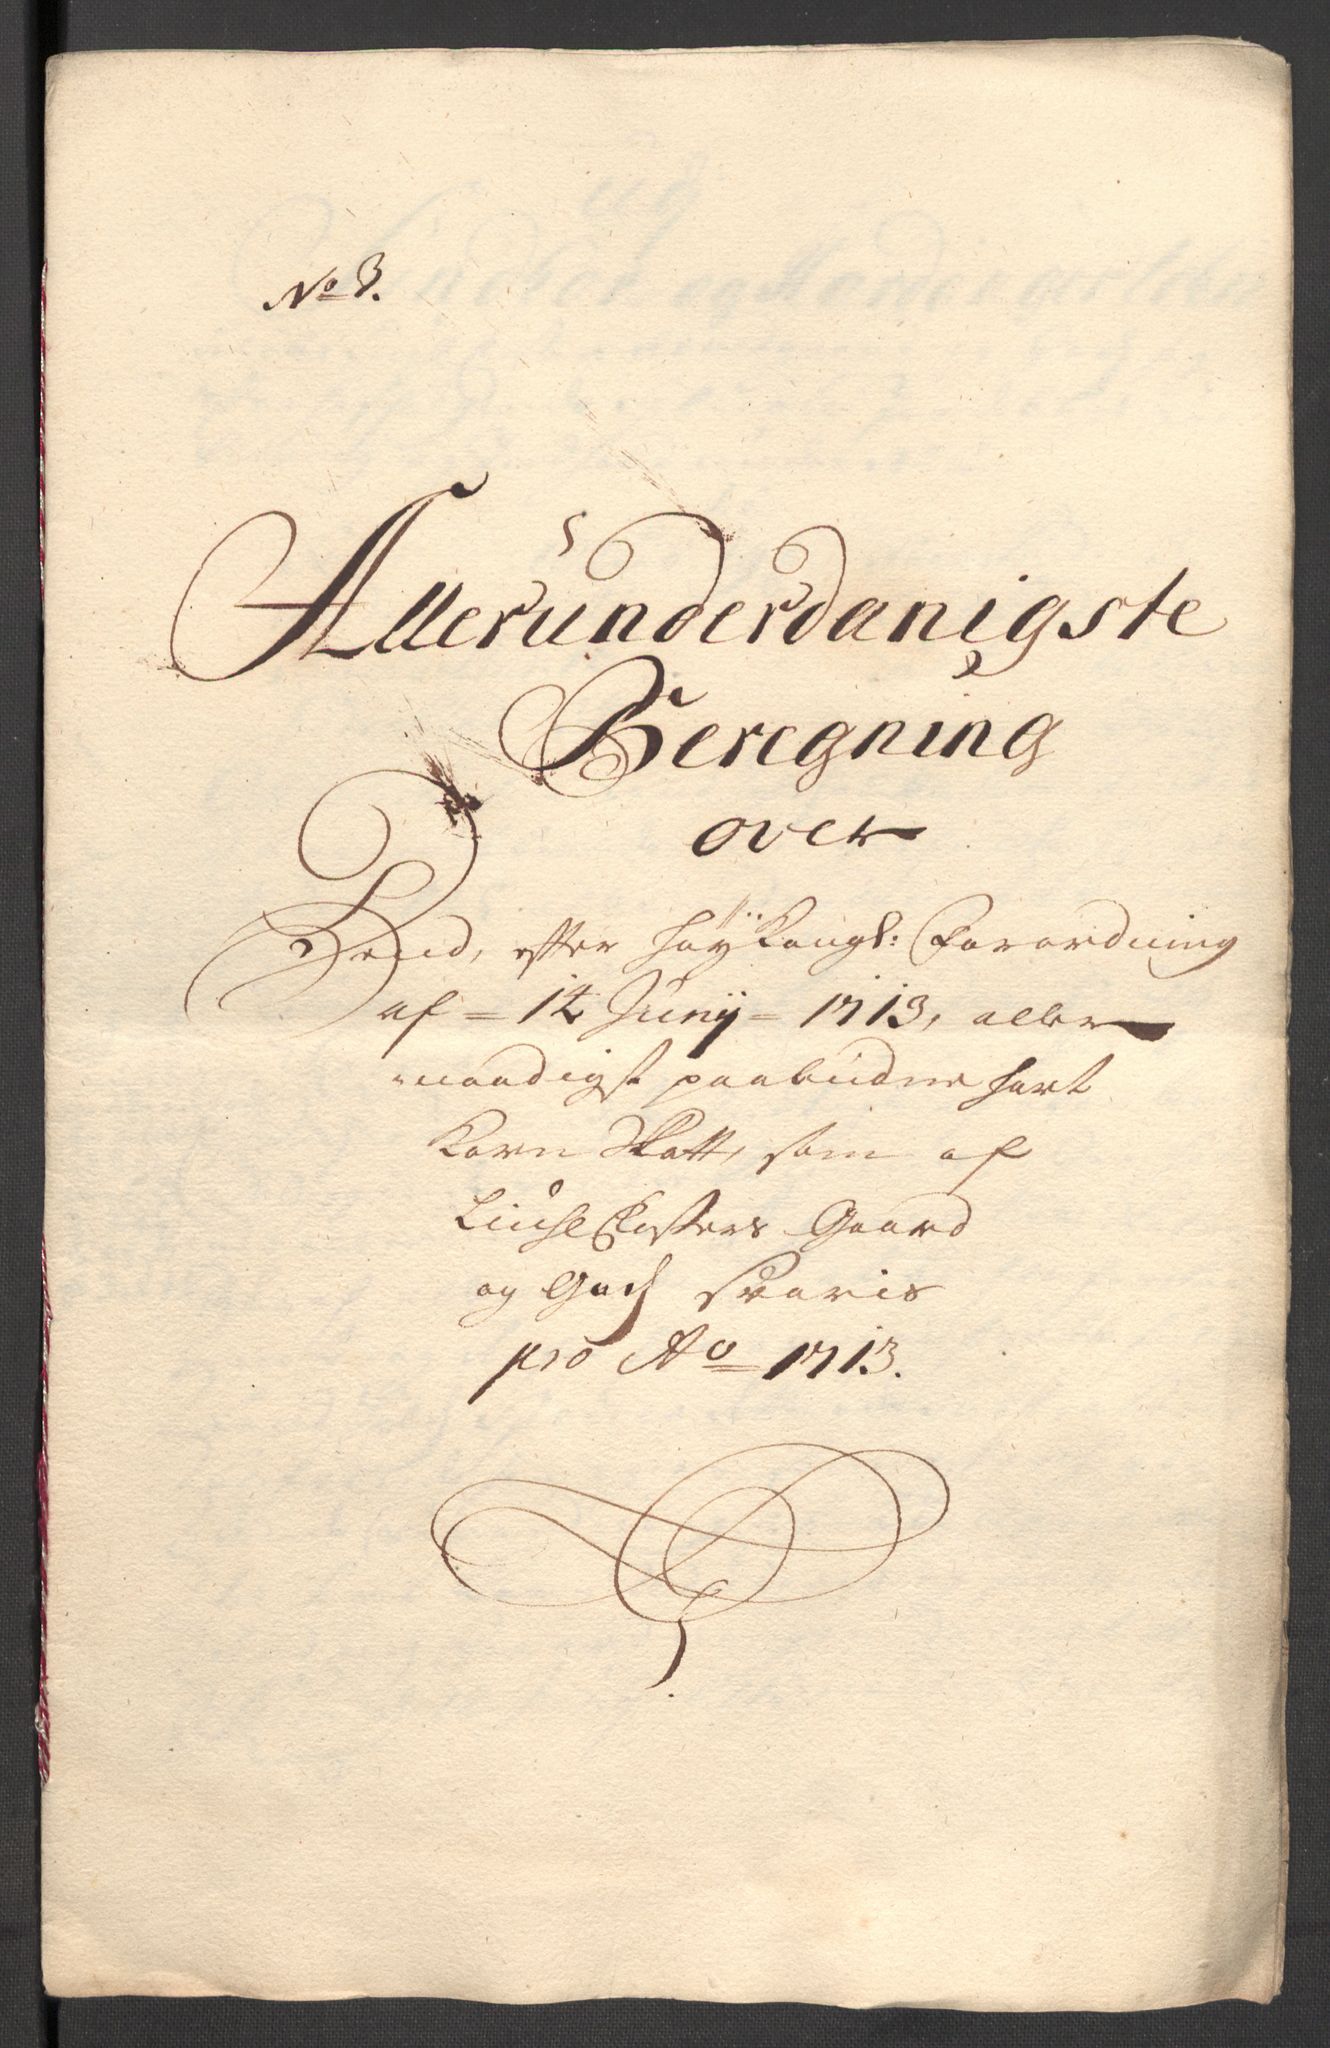 No 3.
Allerunderdanigste
Beregning
over
Dend, efter høÿKongl: Forordning
af - 14 Junij - 1713, aller
naadigst paabudne hart
Korn Skatt, som af
Closters Gaard
og Gods svaris
pro Ao 1713.